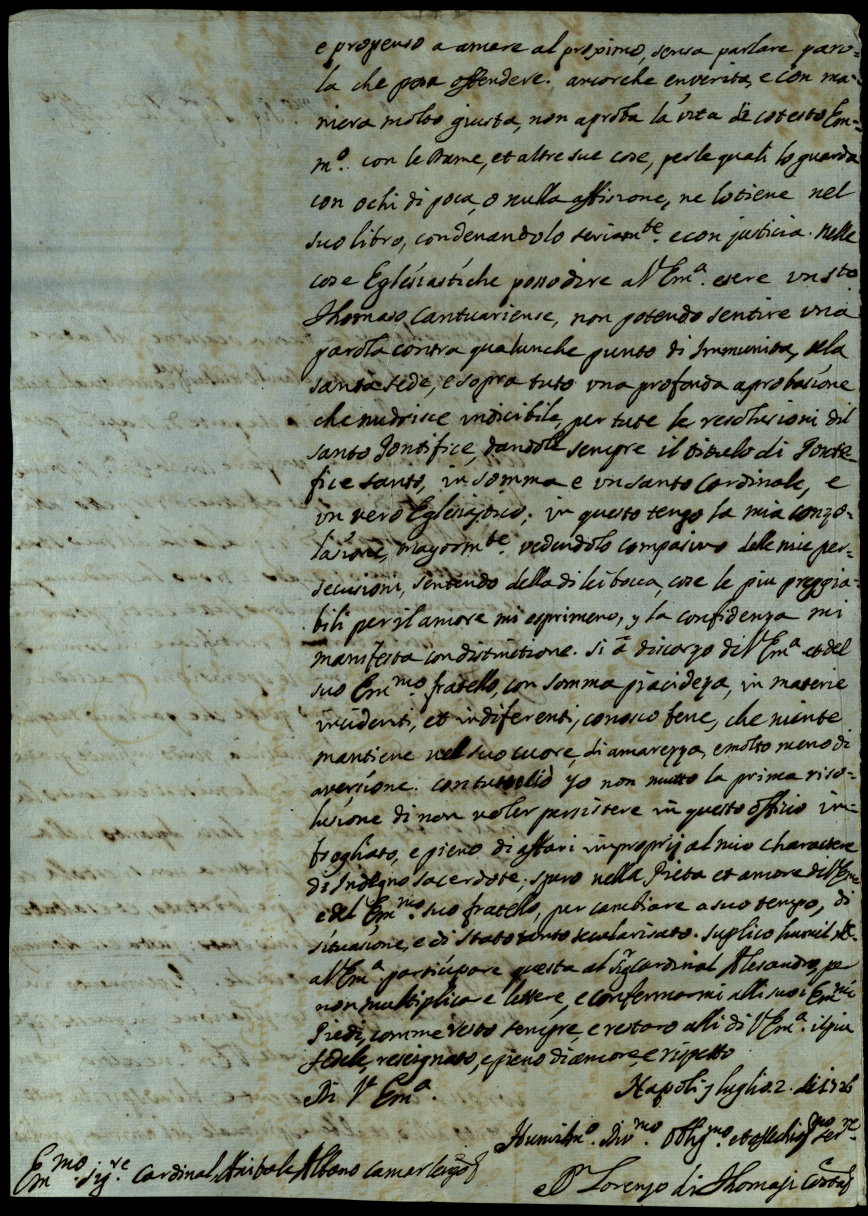 e propenso a amare al proximo, sensa parlare paro-
la che posa offendere. ancorche enverita, e con ma-
niera molto giusta, non aproba la vita di cotesto Em-
mo. con le Dame, et altre sue cose, per le quali lo guarda
con ochi di poca, o nulla affisione, ne lo tiene nel
suo libro, condenandolo seriamte. e con justicia. nelle
cose Eglesiastiche posso dire a Va Ema. esere un sto.
Thomaso Cantuariense, non potendo sentire una
parola contra qualunche punto di Immunita, dela
santa sede, e sopra tuto una profonda aprobasione
che nudrisce indicibile, per tute le resolusioni dil
santo Pontifice, dandole sempre il titulo di Ponte-
fice santo, in somma e un santo Cardinale, e
un vero Eglesiastico; in questo tengo la mia conzo-
lasione, mayormte. vedendolo compasivo delle mie per-
secusioni, sentendo della di lei bocca, cose le piu preggia-
bili per il amore mi esprimeno, y la confidenza mi
manifesta con distinctione. si a discorzo di Va Ema et del
suo Emmo. fratello, con somma piacideza, in materie
incidenti, et indiferenti, conosco bene, che niente
mantiene nel suo cuore, di amarezza, e molto meno di
aversione. con tutto ciò yo non muto la prima riso-
lusione di non voler persistere in questo officio im-
brogliato, e pieno di affari improprij al mio charactere
di Indegno sacerdote; spero nella Pieta et amore di Va Ema
e del Emmo. suo fratello, per cambiare a suo tempo, di
situasione, e di stato tanto secularisato. suplico humilmte.
a Va Ema participare questa al Sigr Cardinal Alesandro, per
non multiplicare lettere, e confermarmi alli suoi Emmi
Piedi, comme resto sempre, e restaro alli di Va Ema. il piu
fedele, resignato, e pieno di amore, e rispetto
Di Va Ema.
Napoli y luglio 2. di 1726
Humilmo. Divmo. Obligmo. et ossechiosmo serre
Emmo Sigre. Cardinal Anibale Albano Camarlengo
Dn Lorenzo di Thomasi